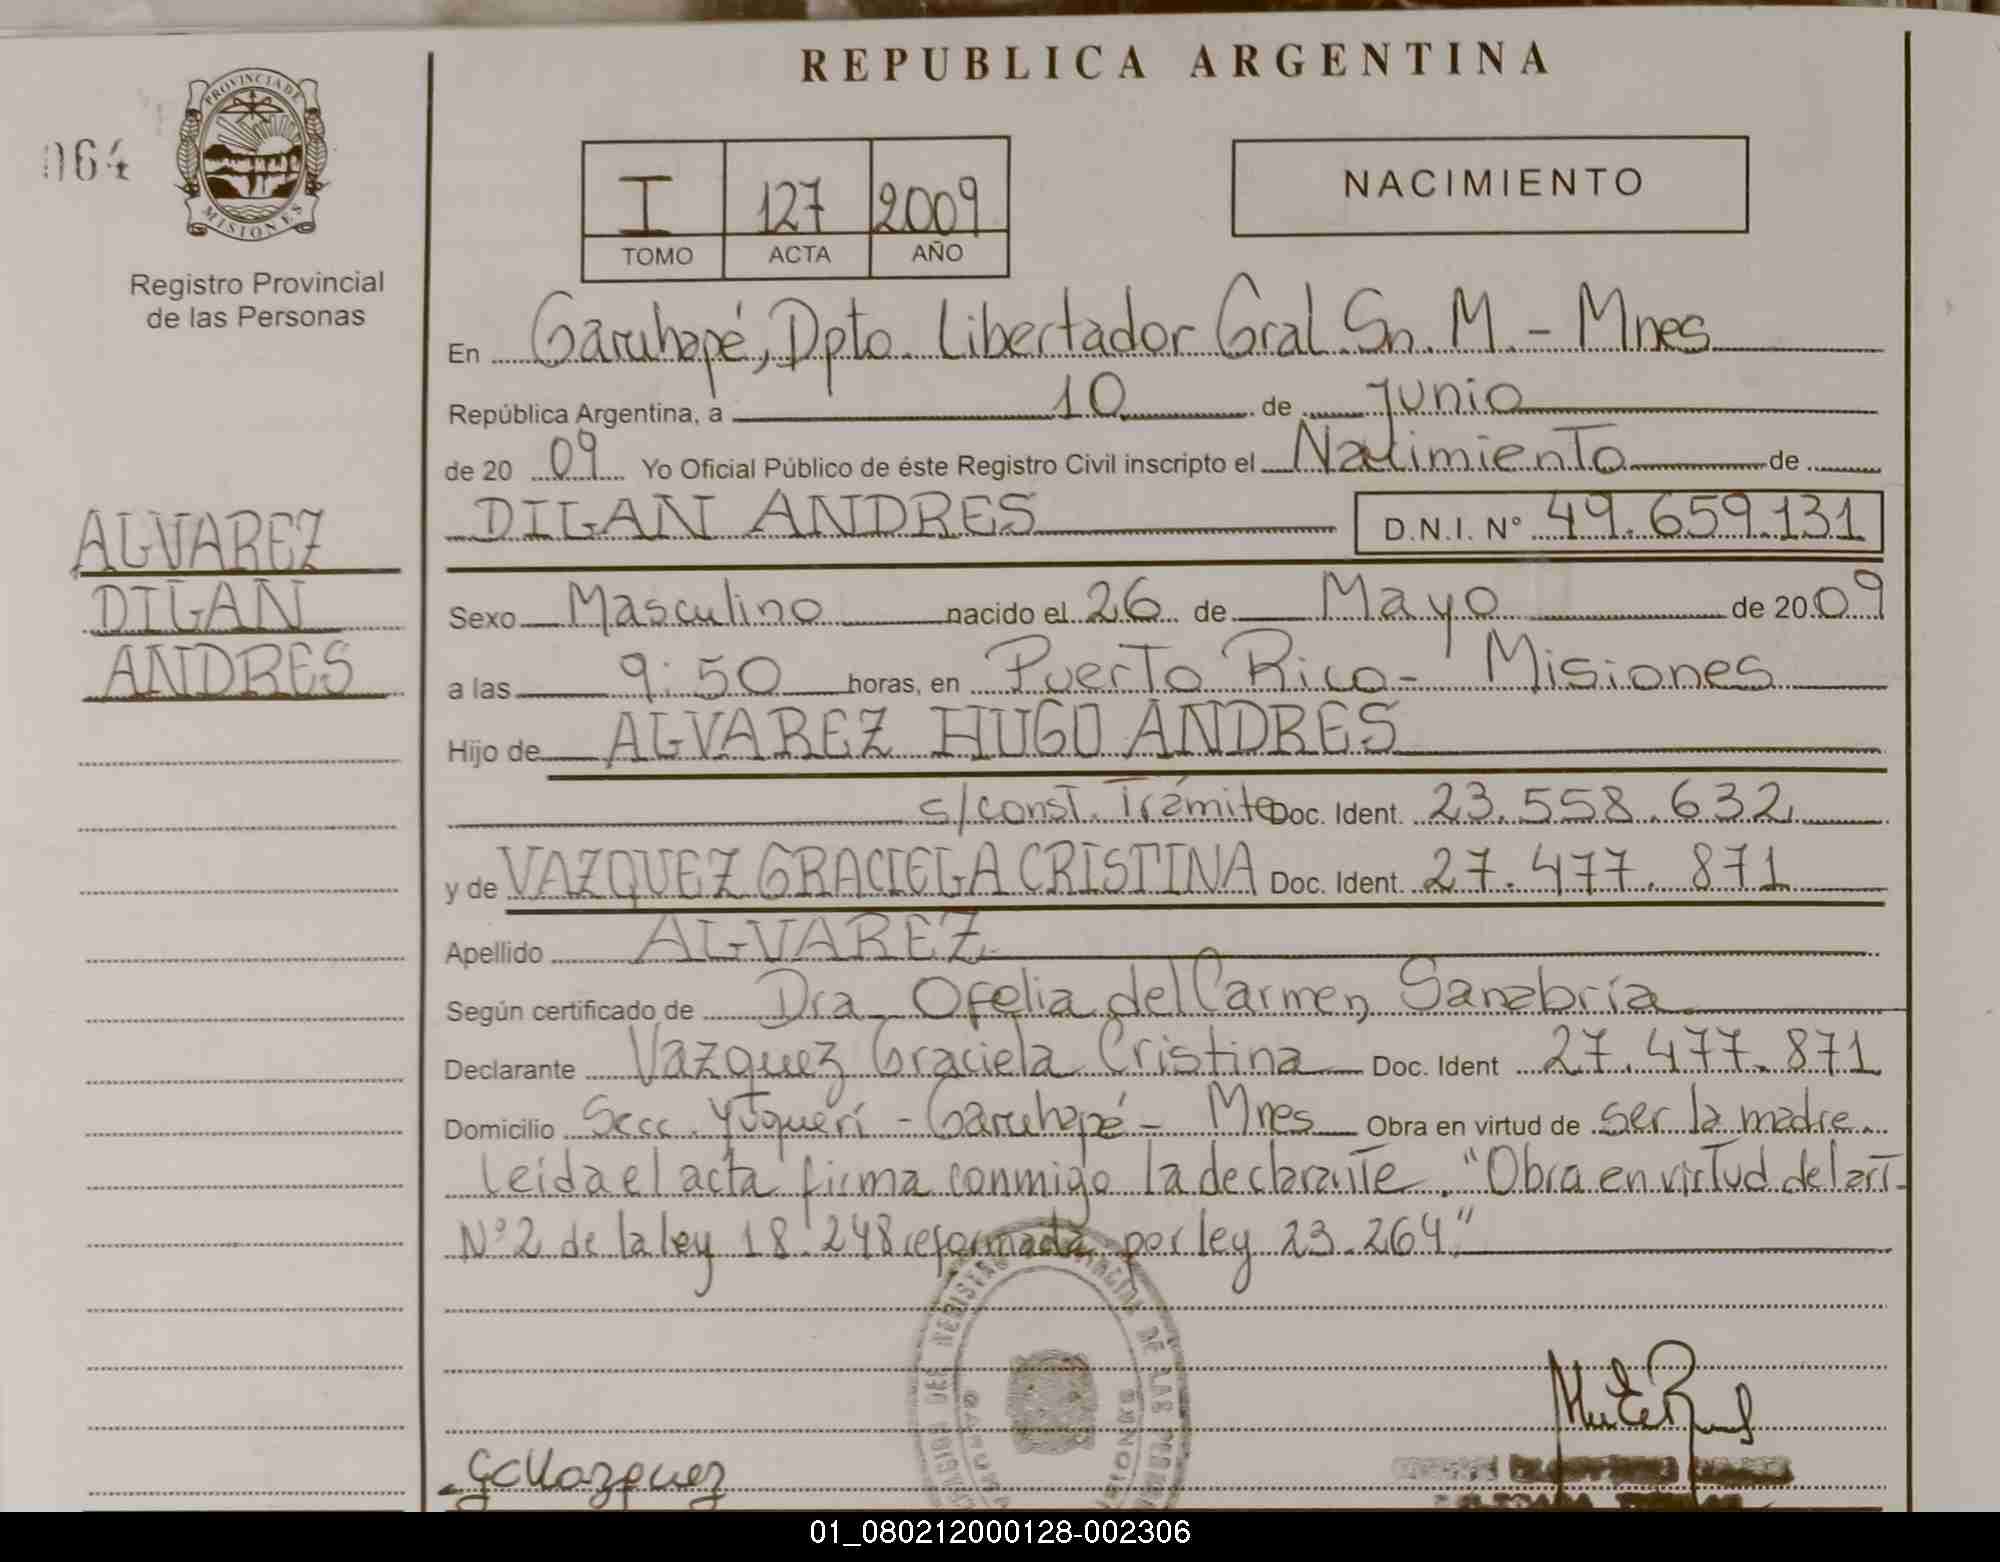 REPUBLICA ARGENTINA
064
PROVINCIA DE MISIONES
Registro Provincial
de las Personas
I 127 2009
TOMO ACTA AÑO
NACIMIENTO
En Garuhapé, Dpto. Libertador Gral. Sn. M. - Mnes
República Argentina, a 10 de junio
de 20 09 Yo Oficial Público de éste Registro Civil inscripto el Nacimiento de
DILAN ANDRES D.N.I. N° 49.659.131
ALVAREZ
DILAN
ANDRES
Sexo Masculino nacido el 26 de Mayo de 2009
a las 9:50 horas, en Puerto Rico - Misiones
Hijo de ALVAREZ HUGO ANDRES
s/const. Trámite Doc. Ident. 23.558.632
y de VAZQUEZ GRACIELA CRISTINA Doc. Ident. 27.477.871
Apellido ALVAREZ
Según certificado de Dra. Ofelia del Carmen Sanabria
Declarante Vazquez Graciela Cristina Doc. Ident 27.477.871
Domicilio Secc. Yuquerí - Garuhapé - Mnes Obra en virtud de ser la madre
leida el acta firma conmigo la declarante. "Obra en virtud del art.
N°2 de la ley 18.248 reformada por ley 23.264"
GcVazquez
01_080212000128-002306